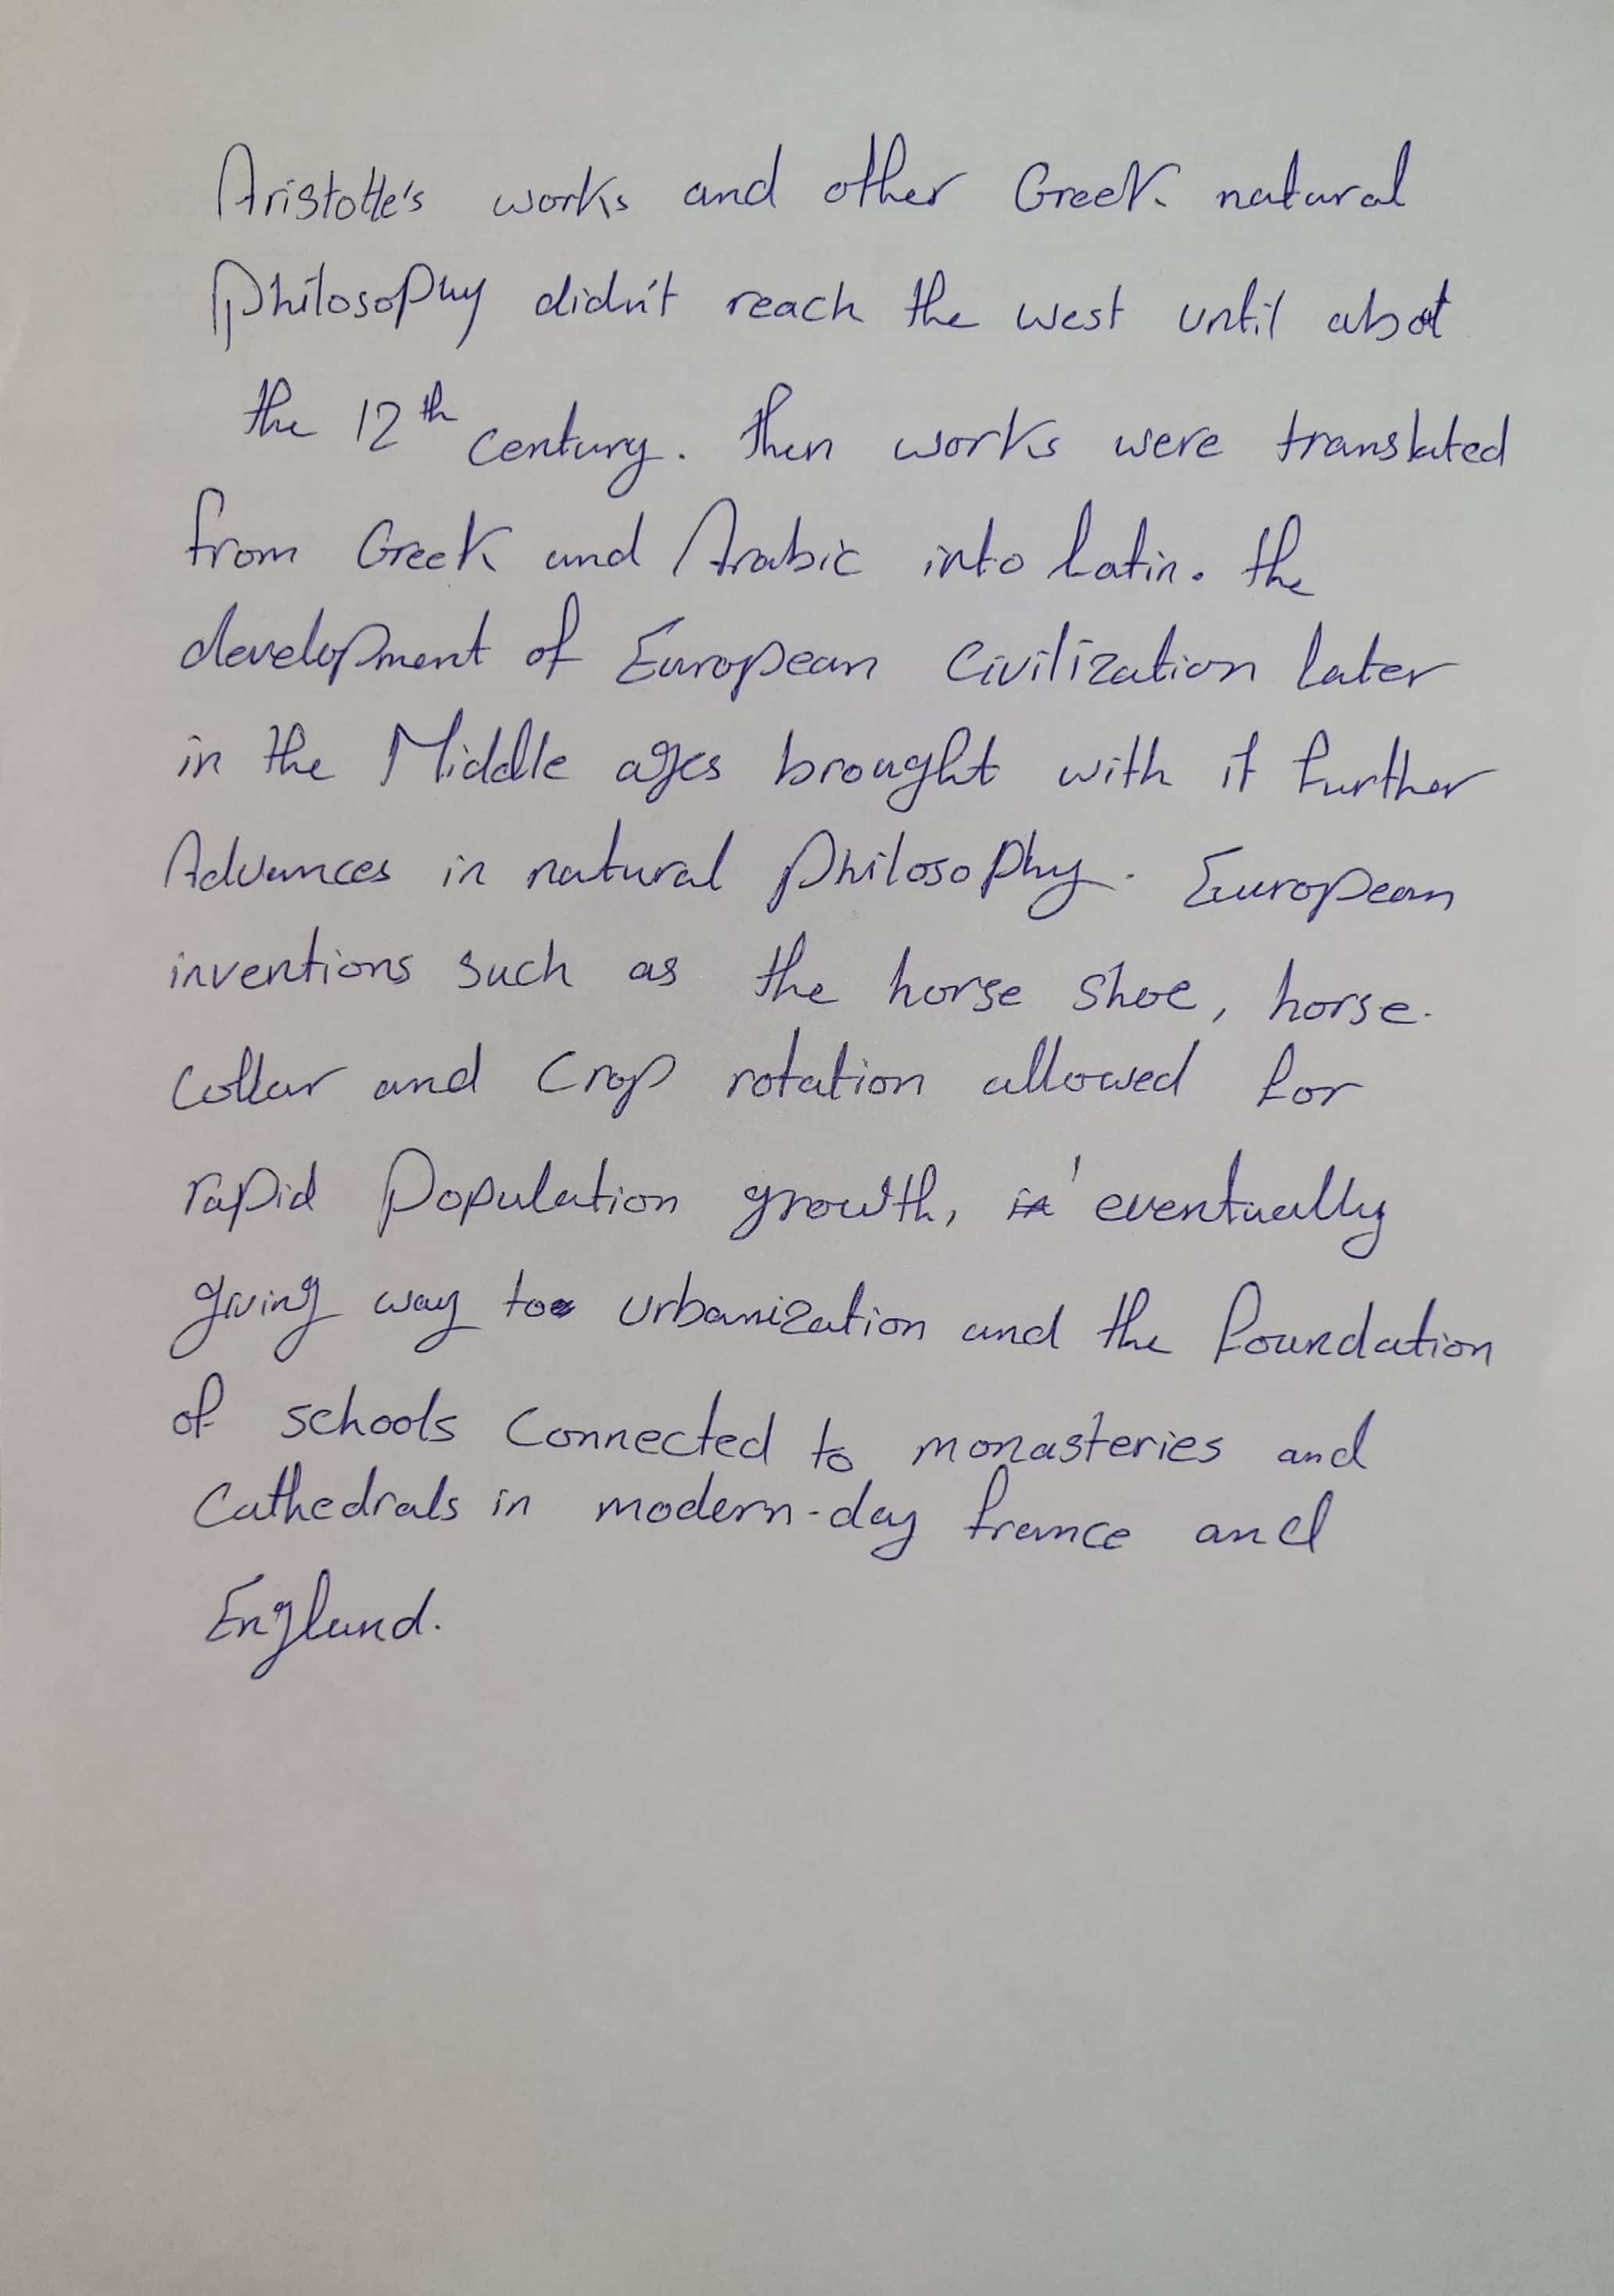 Aristotle's works and other Greek natural
Philosophy didn't reach the west until about
the 12th century. Then works were translated
from Greek and Arabic into Latin. the
development of European Civilization later
in the Middle ages brought with it further
Advances in natural Philosophy. European
inventions such as the horse shoe, horse
Collar and Crop rotation allowed for
rapid Population growth, eventually
giving way to urbanization and the foundation
of schools Connected to monasteries and
Cathedrals in modern-day france and
England.